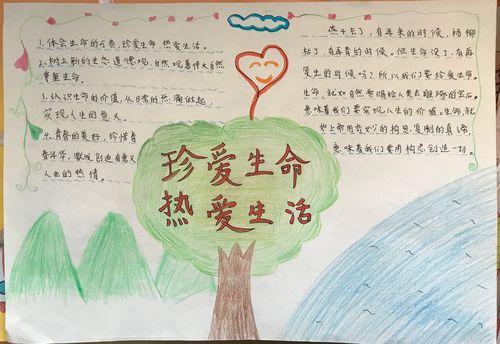 1.体会生命的可贵,珍爱生命,热爱生活。
2.树立新的生态道德观,自然观善待大自然
尊重生命。
3.认识生命的价值,从日常的点滴做起,
实现人生的意义。
4.青春的美好,珍惜青
春年华,激发创造有意义
人生的热情。
珍爱生命
热爱生活
燕子去了,有再来的时候,杨柳
枯了,有再青的时候。但生命没了,有再
复生的时候吗?所以我们要珍爱生命。
生命,就如自然所赐给人类去雕琢的宝石。
意味着我们要实现人生的价值。生命,就
意味着我们要用构思创造一切。